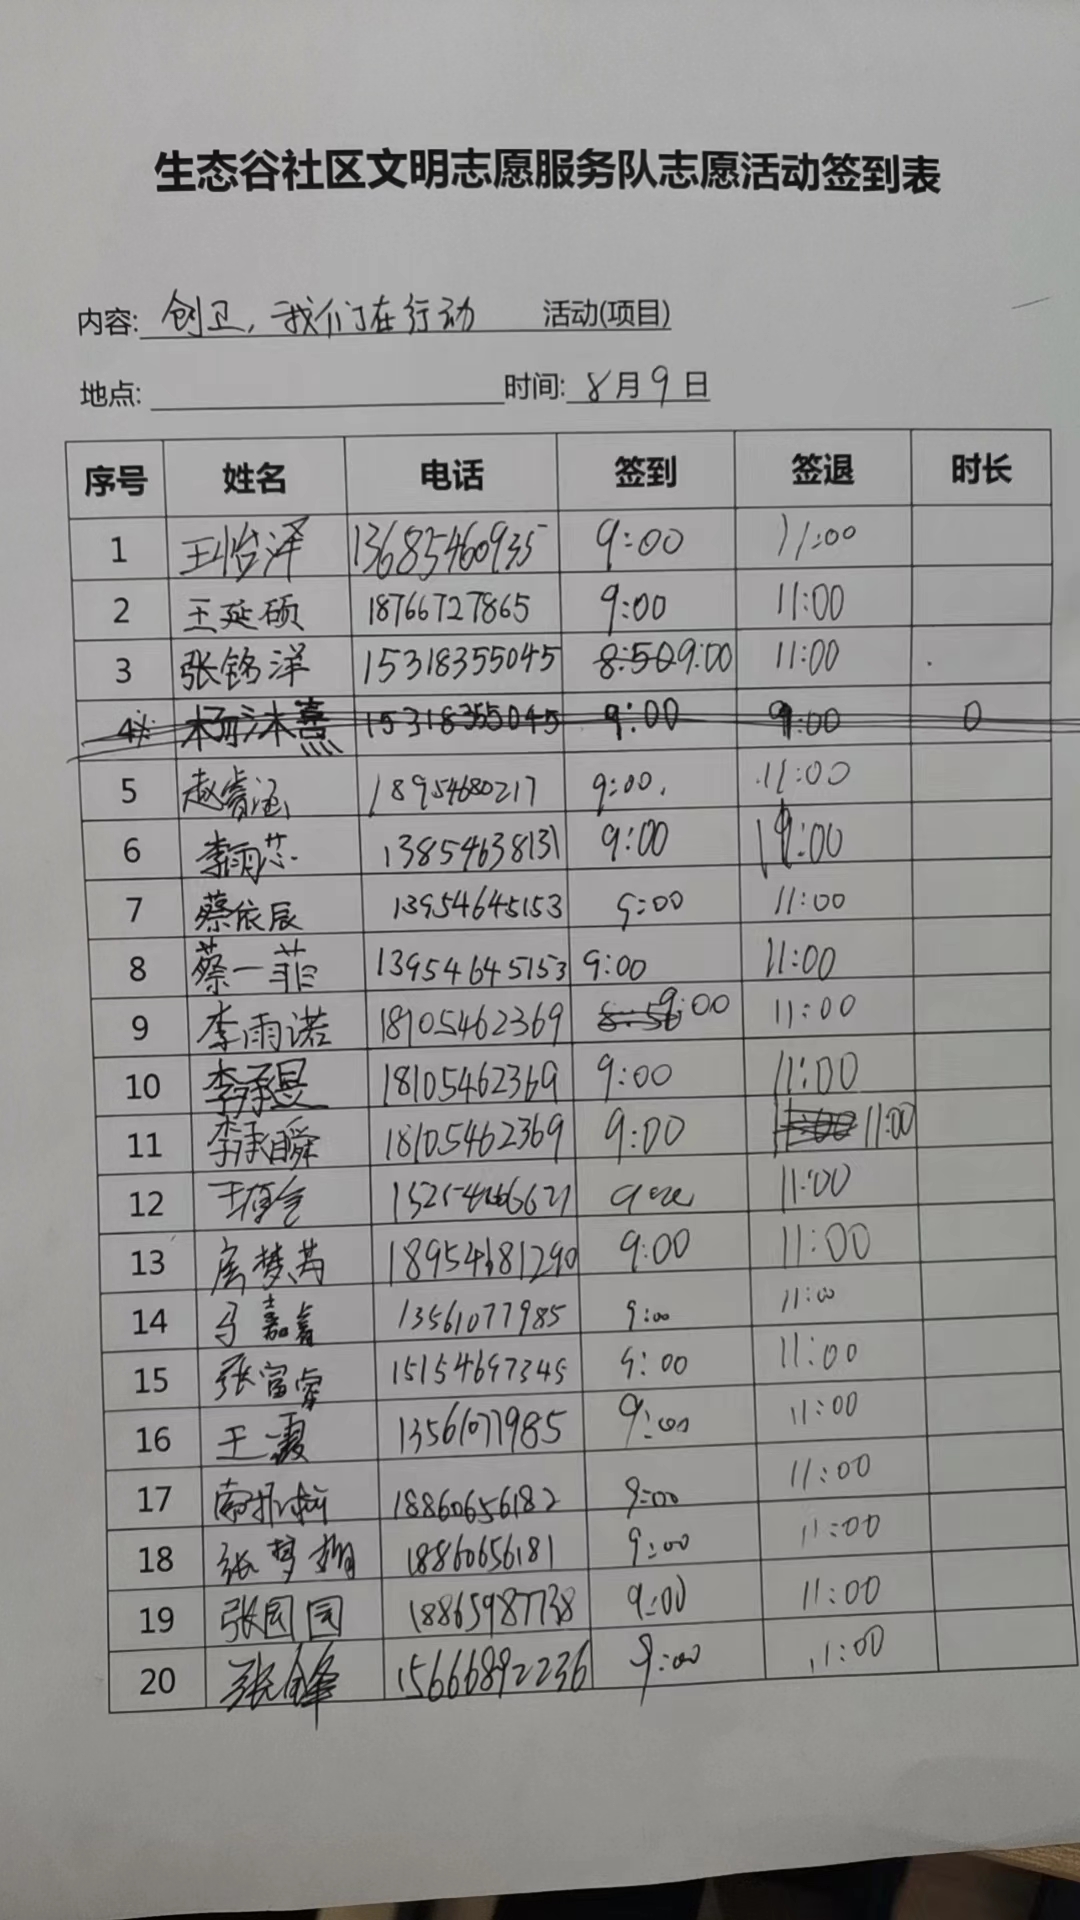 生态谷社区文明志愿服务队志愿活动签到表
内容: 创卫，我们在行动 活动(项目)
地点: 时间: 8月9日
序号 姓名 电话 签到 签退 时长
1 王怡泽 13685460935 9:00 11:00
2 王延硕 18766727865 9:00 11:00
3 张铭洋 15318355045 8:50 9:00 11:00
4 杨沐熹 15318355045 9:00 9:00 0
5 赵睿涵 18954680217 9:00. 11:00
6 李雨芯 13854638131 9:00 11:00
7 蔡依辰 13954645153 9:00 11:00
8 蔡一菲 13954645153 9:00 11:00
9 李雨诺 18105462369 8:56 9:00 11:00
10 李承昱 18105462369 9:00 11:00
11 李承瞬 18105462369 9:00 11:00 11:00
12 9:00 11:00
13 房梦芮 18954681290 9:00 11:00
14 马嘉鑫 13561077985 9:00 11:00
15 张富荣 15154697345 9:00 11:00
16 王霞 13561077985 9:00 11:00
17 18860656182 9:00 11:00
18 张梦 18860656181 9:00 11:00
19 张园园 18865987738 9:00 11:00
20 张锋 15666892236 9:00 11:00